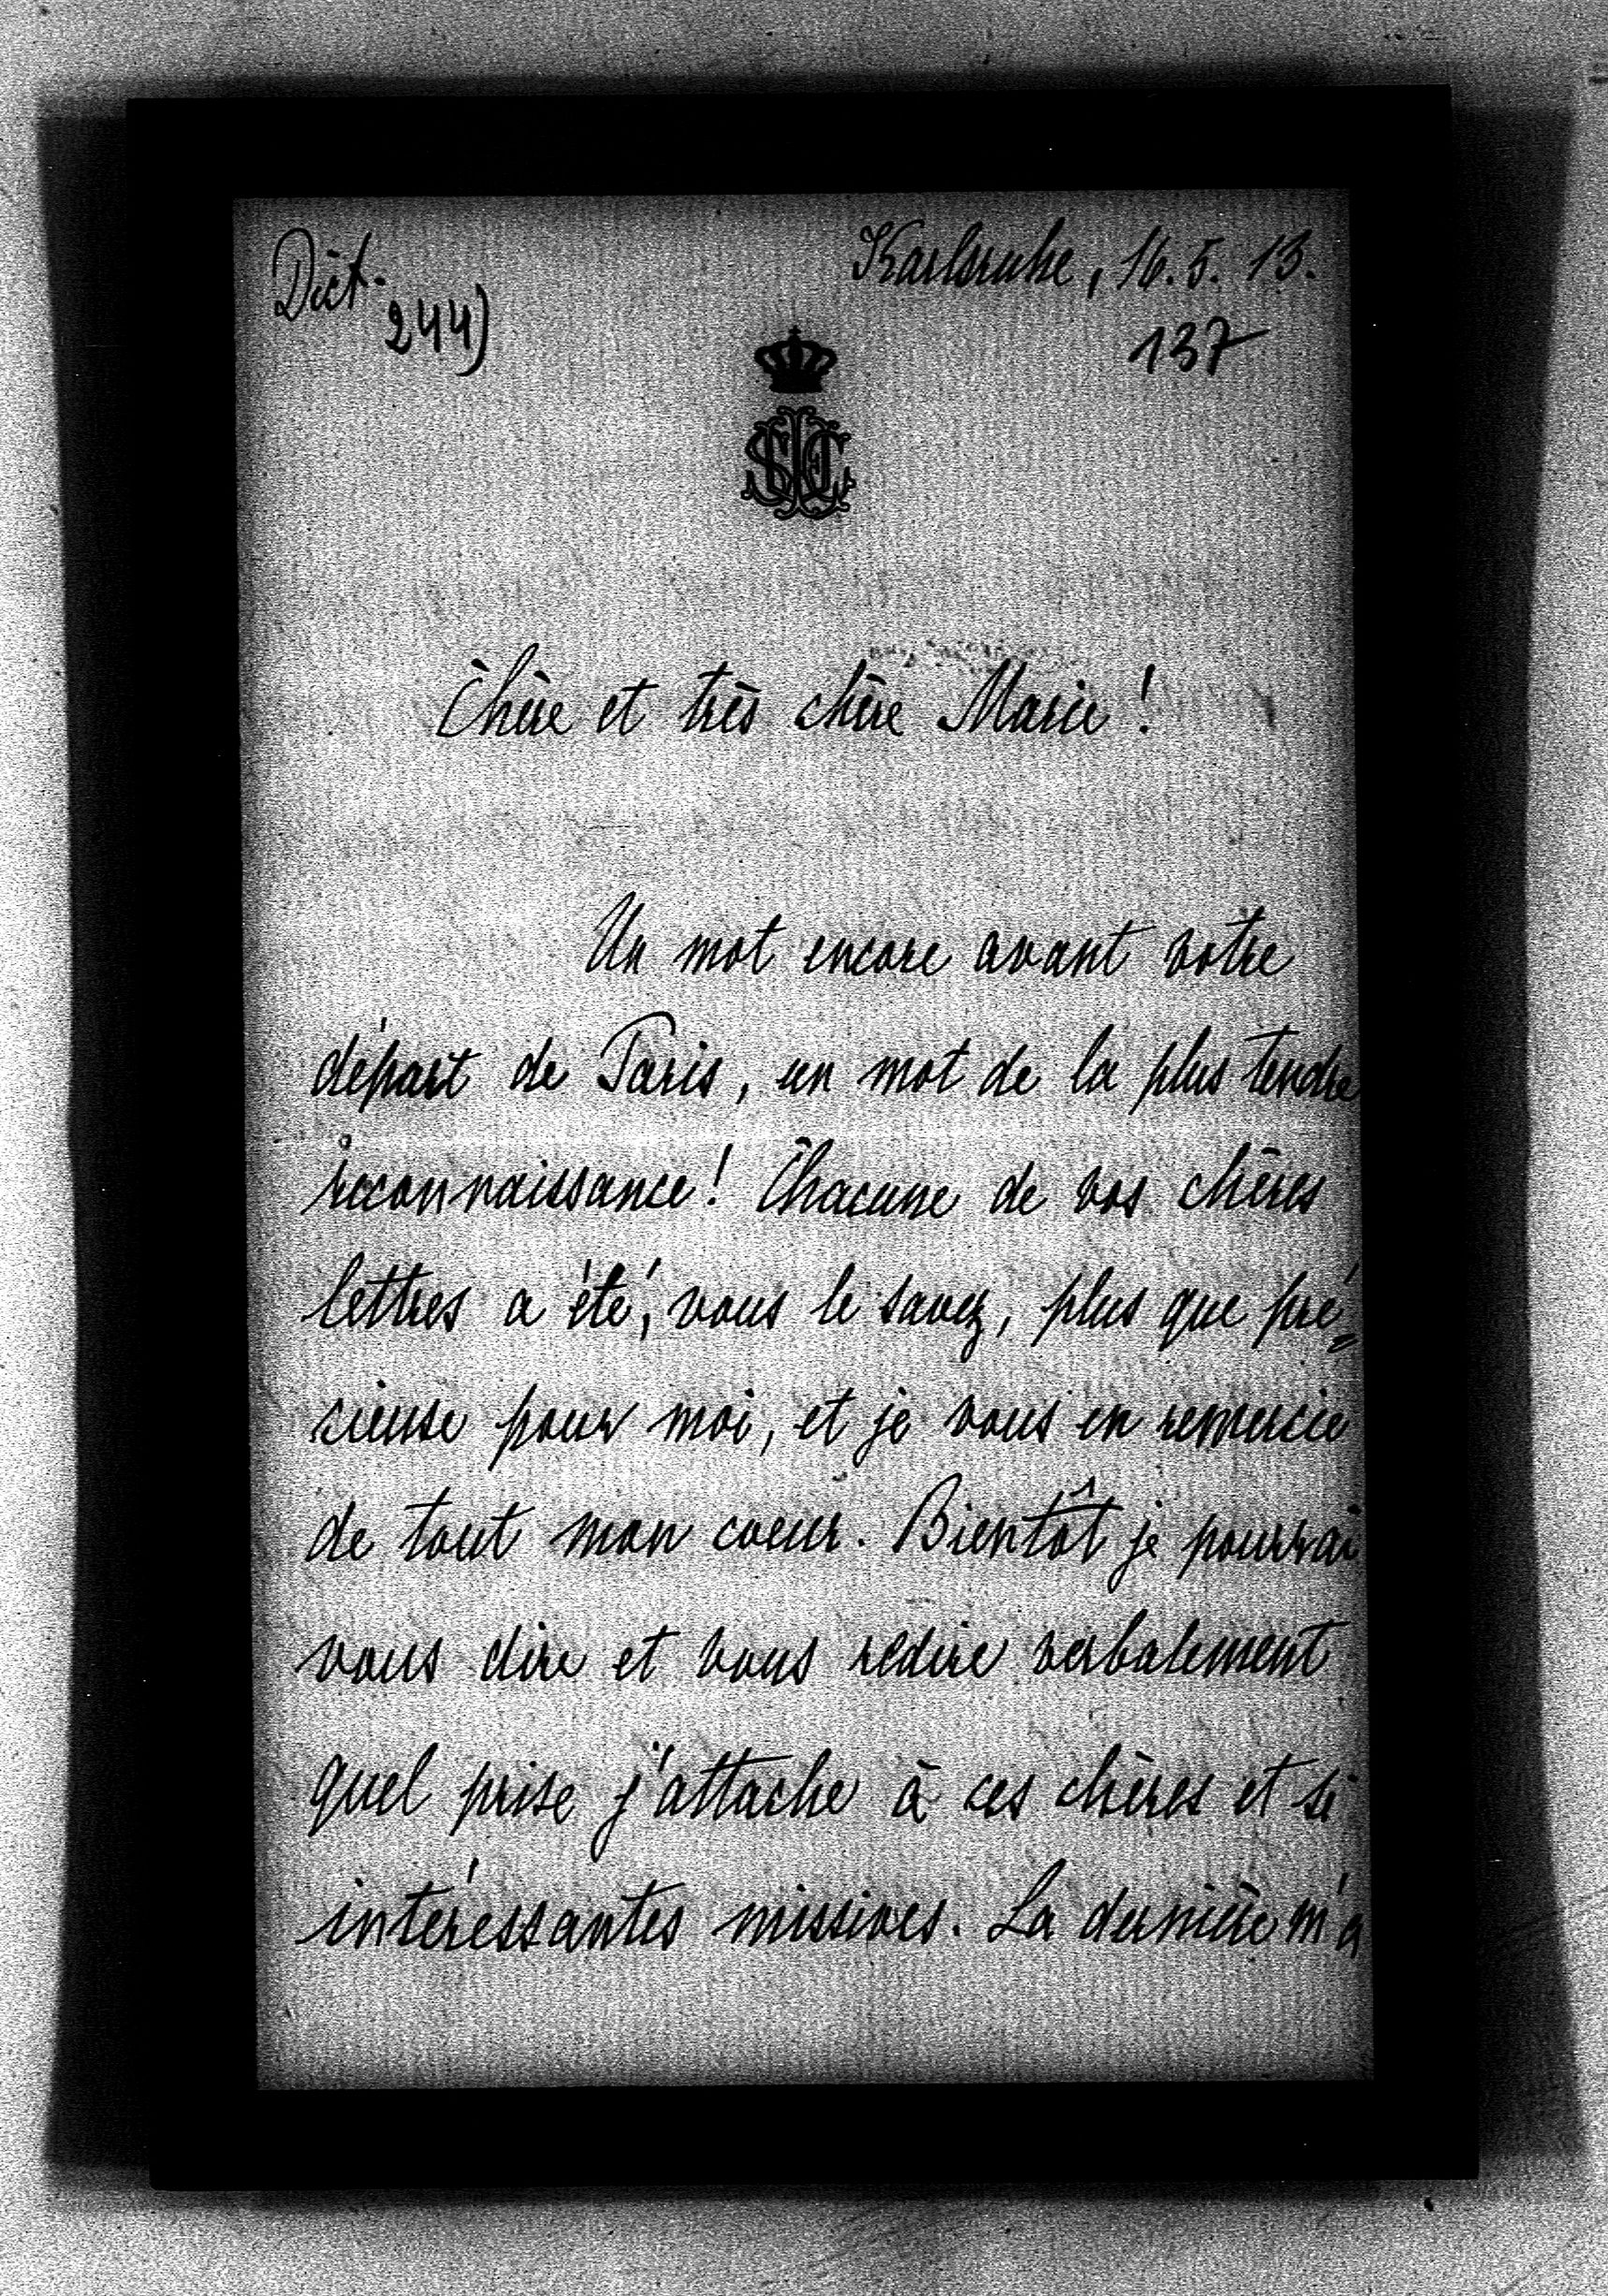 Dict. Karlsruhe, 16. 5. 13.
244) 137
Chère et très chère Marie !
Un mot encore avant votre
départ de Paris, un mot de la plus tendre
reconnaissance! Chacune de vos chères
lettres a été, vous le savez, plus que pré=
cieuse pour moi, et je vous en remercie
de tout mon coeur. Bientôt je pourrai
vous dire et vous redire verbalement
quel prise j'attache à ces chères et si
intéressantes missives. La dernière m'a